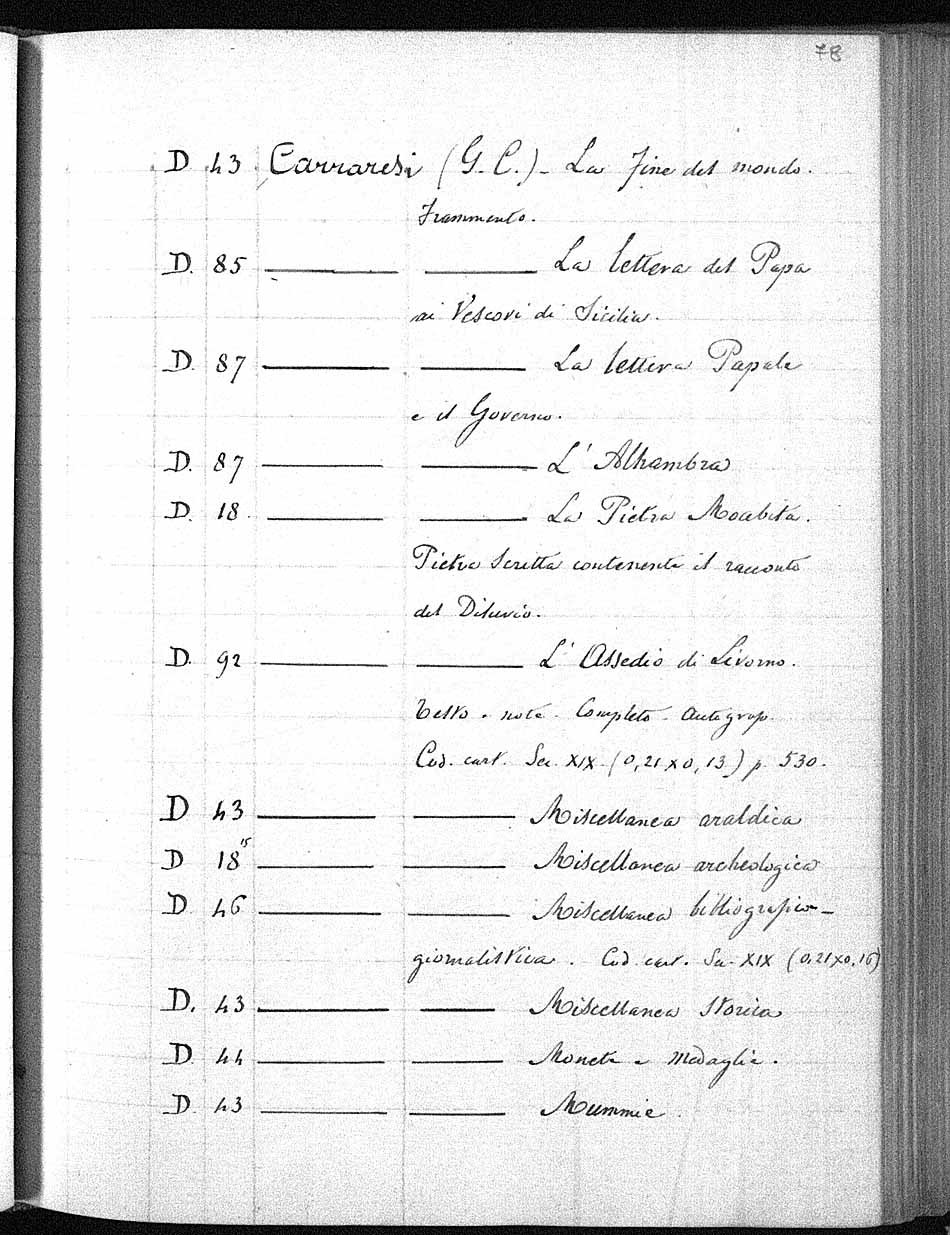 78
D 43 Carraresi (G. C.) - La fine del mondo.
Frammento.
D. 85 ——— ——— La lettera del Papa
ai Vescovi di Sicilia.
D. 87 ——— ——— La lettera Papale
e il Governo.
D. 87 ——— ——— L' Alhambra
D. 18 ——— ——— La Pietra Moabita.
Pietra Scritta contenente il racconto
del Diluvio.
D. 92 ——— ——— L' Assedio di Livorno.
Testo e note. Completo. Autograp.
Cod. cart. Sec. XIX (0,21 x 0,13) p. 530.
D 43 ——— ——— Miscellanea araldica
D 18 15 ——— ——— Miscellanea archeologica
D 46 ——— ——— Miscellanea bibliografico-
giornalistica. Cod. cart. Sec. XIX (0,21 x 0,16)
D. 43 ——— ——— Miscellanea storica
D. 44 ——— ——— Monete e medaglie.
D 43 ——— ——— Mummie.